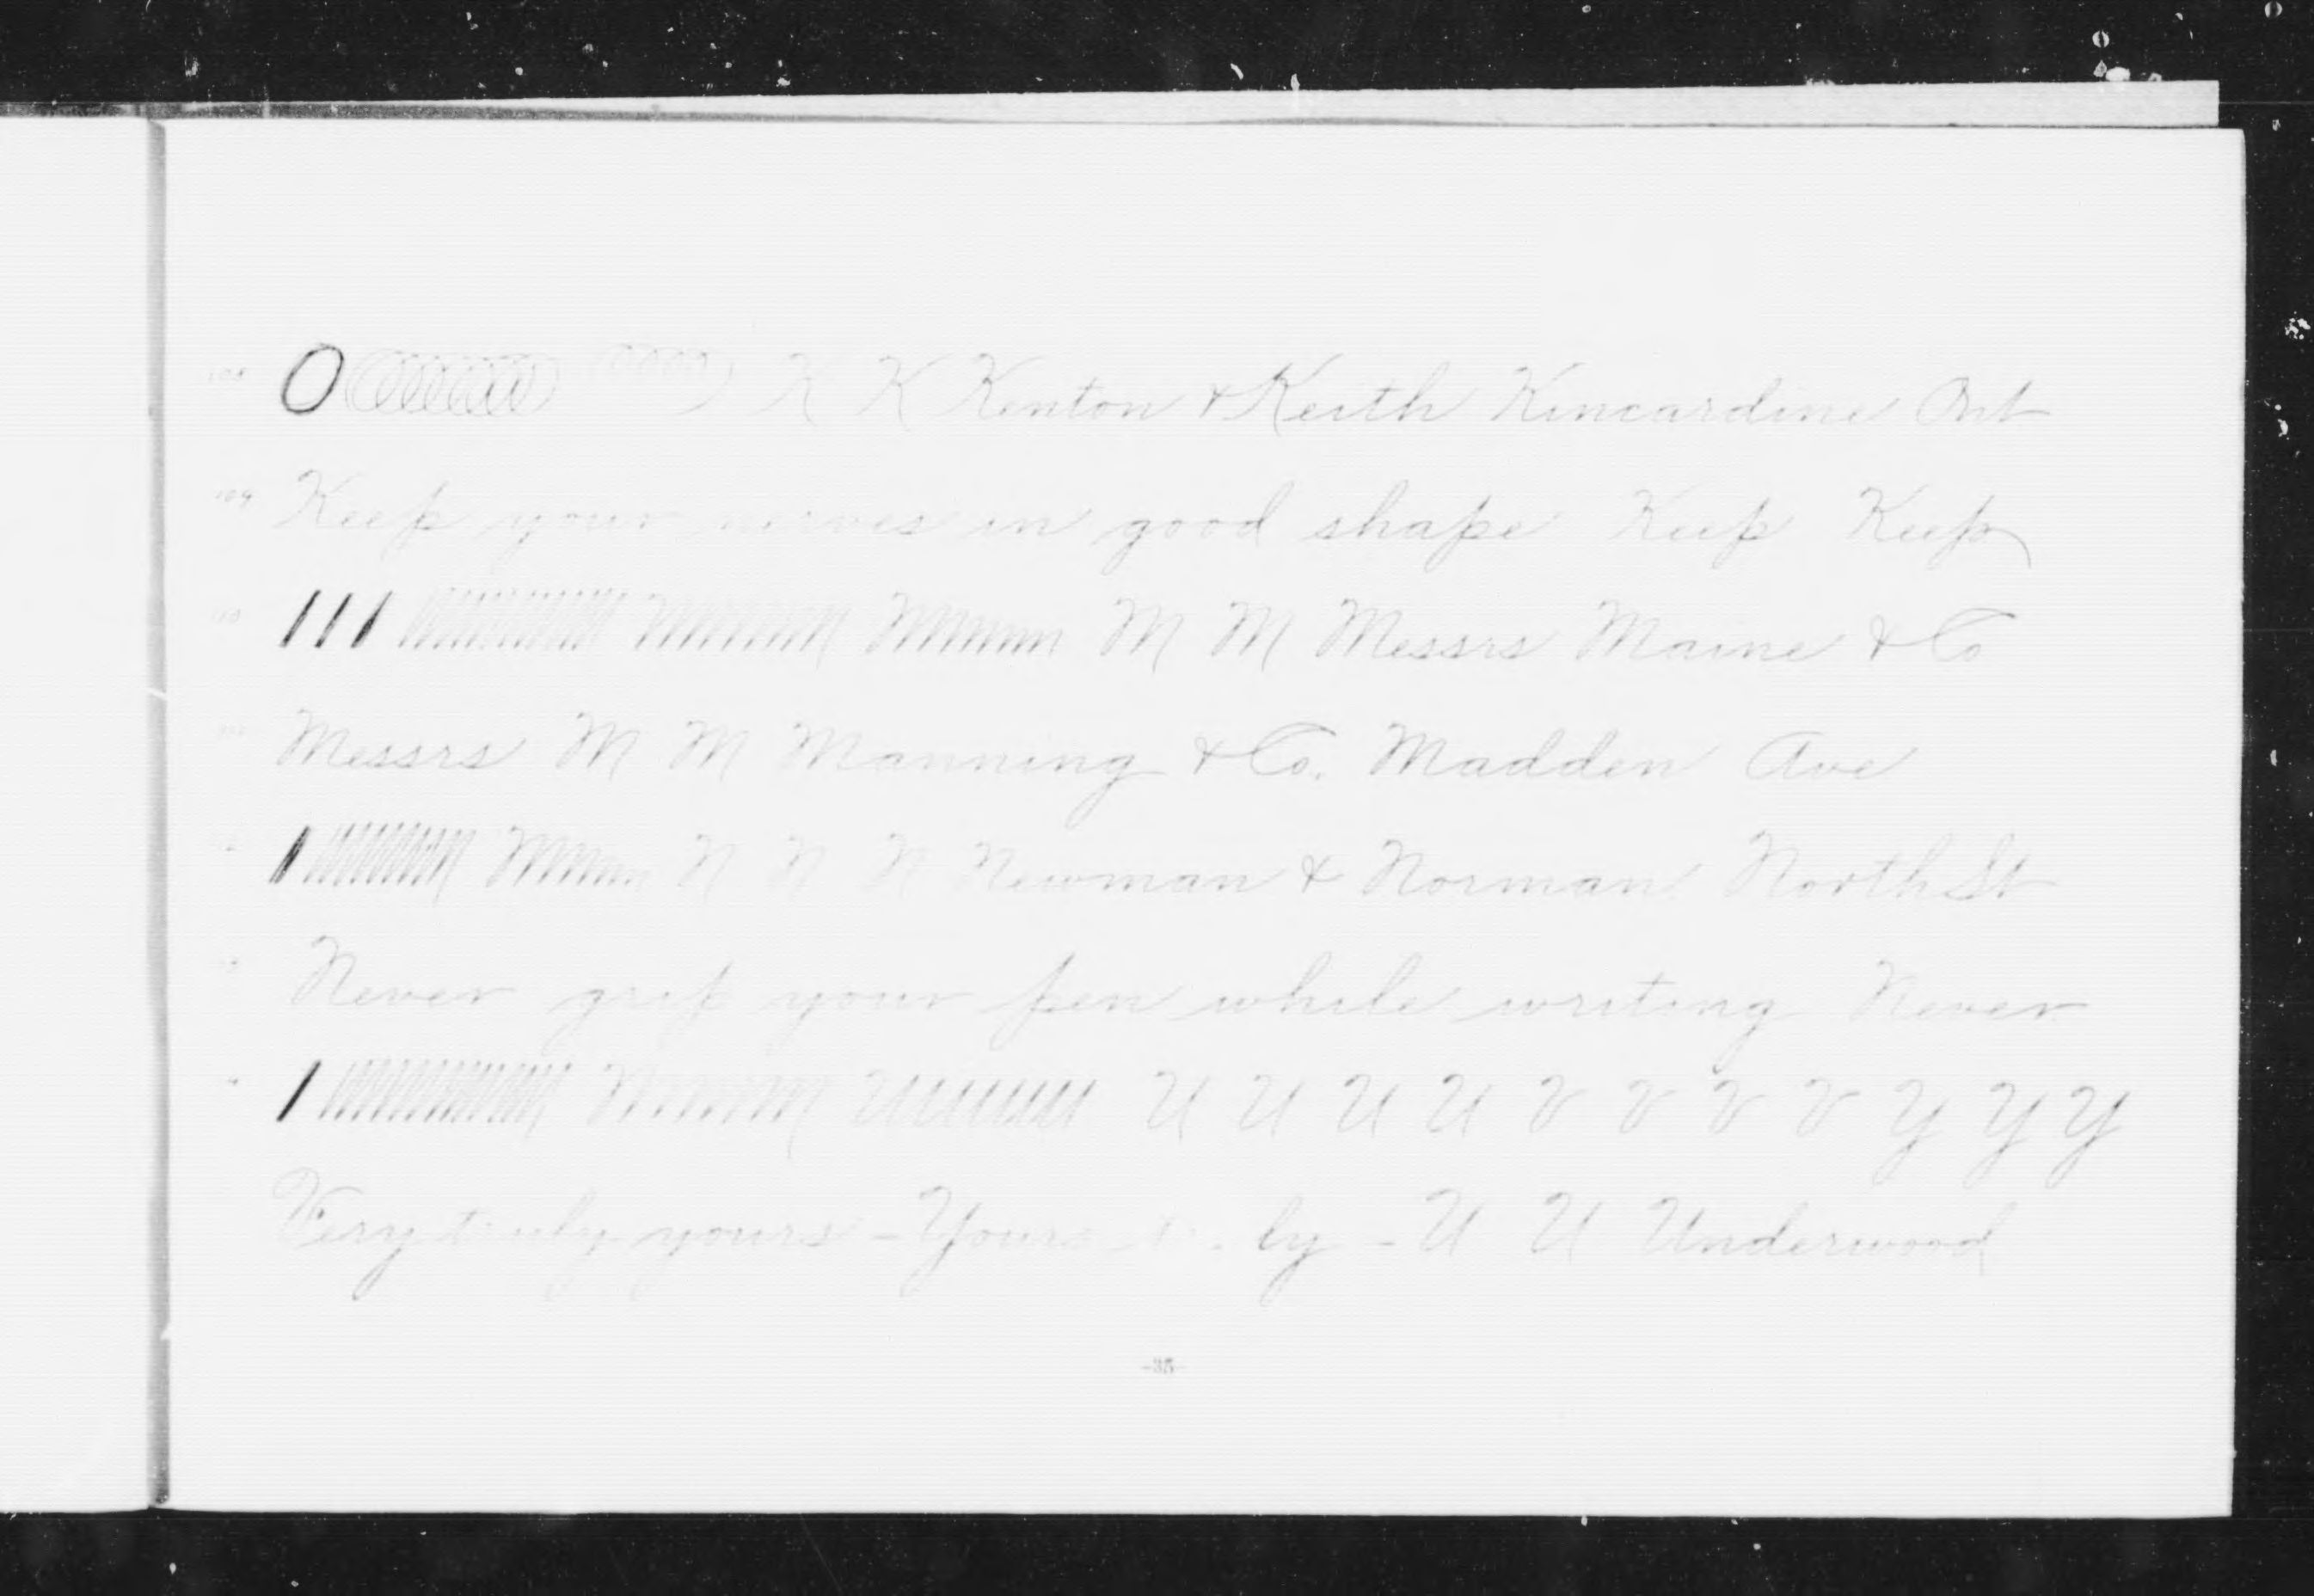 108 O K K Kenton & Keith Kincardine Ont
109 Keep your nerves in good shape Keep Keep
110 M M Messrs Maine & Co
Messrs M M Manning & Co. Madden Ave
N N N Newman & Norman North St
Never grip your pen while writing Never
U U U U V V V V Y Y Y
Very truly yours - Yours ly - U U Underwood
-35-